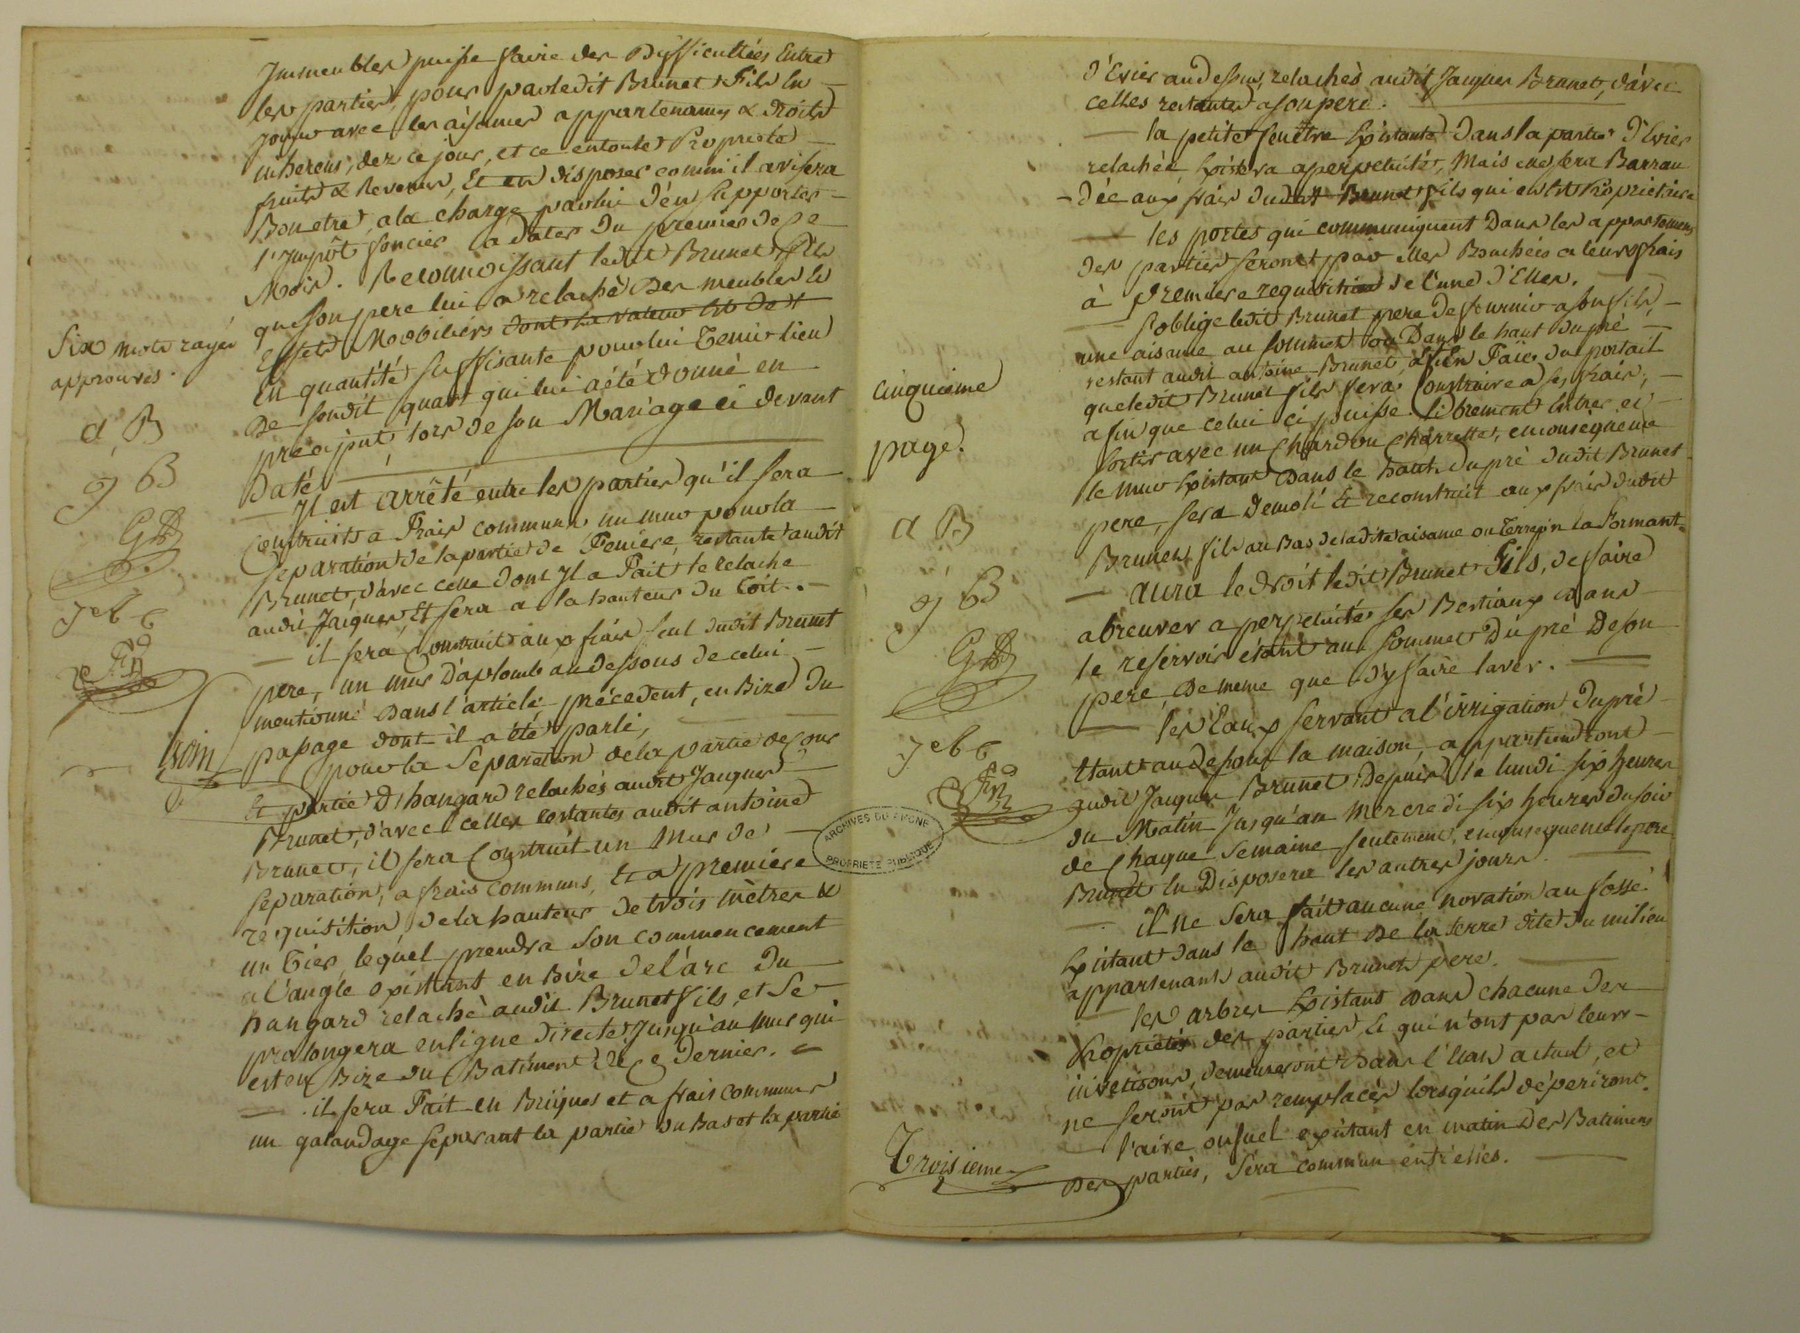 Immeubles puisse faire des Dyfficultées Entre
les parties, pour par ledit Brunet Fils en
Jouir avec les aisances appartenances & droits
inherens, dez ce jour, et ce en toute Propriété
fruits & Revenus, Et en disposer comm'il avisera
Bon etre, a la charge par lui d'en supporter
l'Impôt foncier a dater du premier de Ce
Mois. Reconnoissant ledit Brunet Fils
que son pere lui a relaché des meubles et
Effets Mobiliers dont la valeur est de
En quantité suffisante pour lui Tenir lieu
De sondit quart qui lui a été donné en
préciput lors de son Mariage ci devant
Daté.
— Il est arrêté entre les parties qu'il sera
Construit a Frais communs un mur pour la
Séparation de la partie de Feniere, restante audit
Brunet, d'avec celle dont Il a Fait le relache
audit Jacques, Et sera a la hauteur du Toit. —
— il sera Construit aux frais seul dudit Brunet
pere, un mur d'aplomb au dessous de celui
mentionné dans l'article précédent, en Bize du
passage dont il a été parlé,
pour la Séparation de la partie de Cour
Et partie d'hangard relachés audit Jacques
Brunet, d'avec celles restantes audit antoine
Brunet, il sera Construit un Mur de
séparation, a frais communs, Et a premiere
requisition, de la hauteur de trois mètres &
un Tier, lequel prendra son commencement
a l'angle Existant en Bize de l'arc du
hangard relaché audit Brunet fils, et Se
prolongera en ligne directe Jusqu'au Mur qui
est en Bize du Batiment de ce Dernier. —
— il sera Fait en Briques et a frais communs
un galandage séparant la partie du Bas et la partie
Six mots rayés
approuvés.
a B
j B
GB
J eb b
d'Evier au dessus, relachés audit Jacques Brunet, d'avec
celles restantes a son pere.
— la petite fenêtre Existante dans la partie d'Evier
relachée Existera a perpétuité, Mais elle sera Barreau
-dée aux frais dudit Brunet fils qui en est Propriétaire
— les portes qui communiquent dans les appartemens
des parties seront par elles Bouchées a leurs frais
à premiere requisition de l'une d'Elles.
— s'oblige ledit Brunet pere de fournir a son fils,
une aisance au sommet ou Dans le haut du pré
restant audit antoine Brunet, à fin Faire du portail
que ledit Brunet fils fera Construire a ses frais,
afin que celui ci puisse librement entrer et
sortir avec un Char ou Charrette, en conséquence
le mur Existant Dans le haut du pré dudit Brunet
pere, sera Demoli Et reconstruit aux frais dudit
Brunet fils au Bas de ladite aisance ou Terrein la Formant.
— aura le droit ledit Brunet Fils, de faire
abreuver a perpétuité ses Bestiaux dans
le reservoir étant au Sommet du pré de son
pere, de même que d'y faire laver.
— les Eaux servant a l'irrigation du pré
Etant au dessous la maison, appartiendront
audit Jacques Brunet Depuis le lundi six heures
du Matin Jusqu'au Mercredi six heures du soir
de Chaque Semaine seulement, en conséquence le pere
Brunet en Disposera les autres jours.
— il ne sera fait aucune novation au fossé
Existant dans le haut de la terre dite du milieu
appartenant audit Brunet pere.
— les arbres Existant dans chacune des
Propriétés des parties, & qui n'ont pas leurs
invetisons, demeureront dans l'Etat actuel, et
ne seront pas remplacés lorsqu'ils dépériront.
— l'aire ou suel existant en matin des Batimens
des parties, sera commun entr'elles.
cinquieme
page.
a B
j B
GB
J eb b
Troisieme
ARCHIVES DU RHONE
PROPRIETE PUBLIQUE